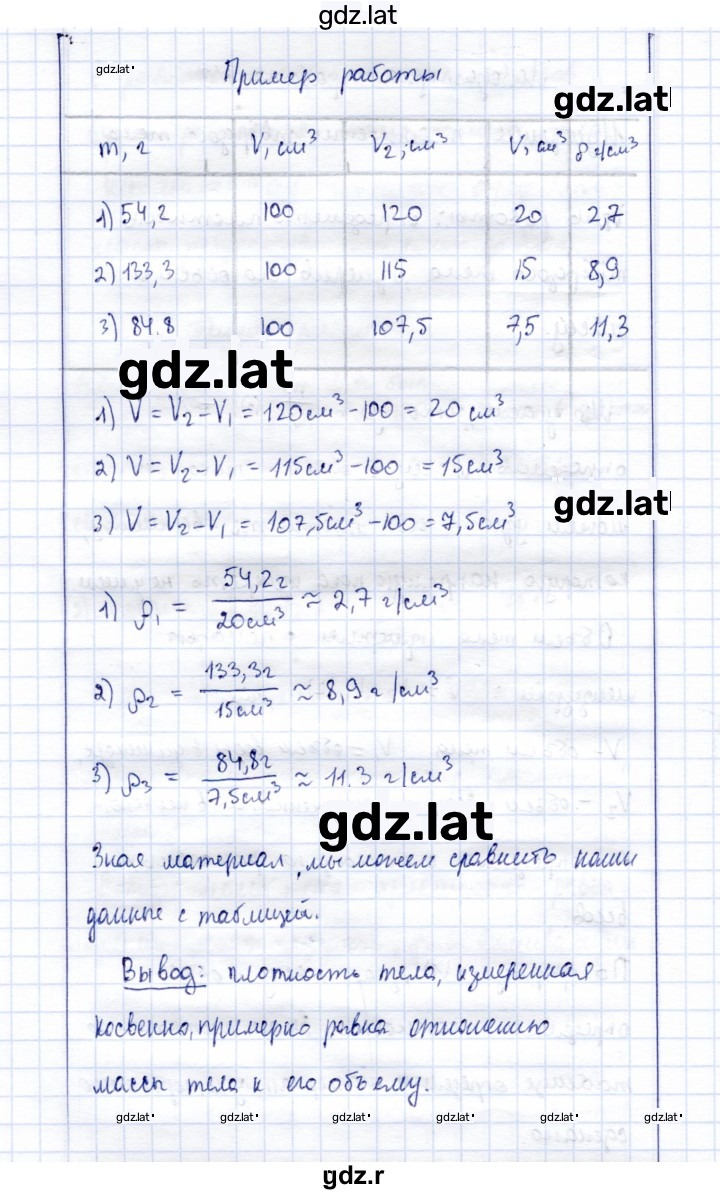 gdz.lat
gdz.lat
Пример работы
gdz.lat
m, г V, см³ V₂, см³ V, см³ ρ г/см³
1) 54,2 100 120 20 2,7
2) 133,3 100 115 15 8,9
3) 84.8 100 107,5 7,5 11,3
gdz.lat
1) V = V₂ – V₁ = 120см³ - 100 = 20 см³
2) V = V₂ – V₁ = 115см³ - 100 = 15см³
gdz.lat
3) V = V₂ – V₁ = 107,5см³ - 100 = 7,5см³
1) ρ₁ = 54,2г / 20см³ ≈ 2,7 г/см³
2) ρ₂ = 133,3г / 15см³ ≈ 8,9 г/см³
3) ρ₃ = 84,8г / 7,5см³ ≈ 11.3 г/см³
gdz.lat
Зная материал, мы можем сравнить наши
данные с таблицей.
Вывод: плотность тела, измеренная
косвенно, примерно равна отношению
массы тела к его объему.
gdz.lat gdz.lat gdz.lat gdz.lat gdz.lat gdz.lat
gdz.r